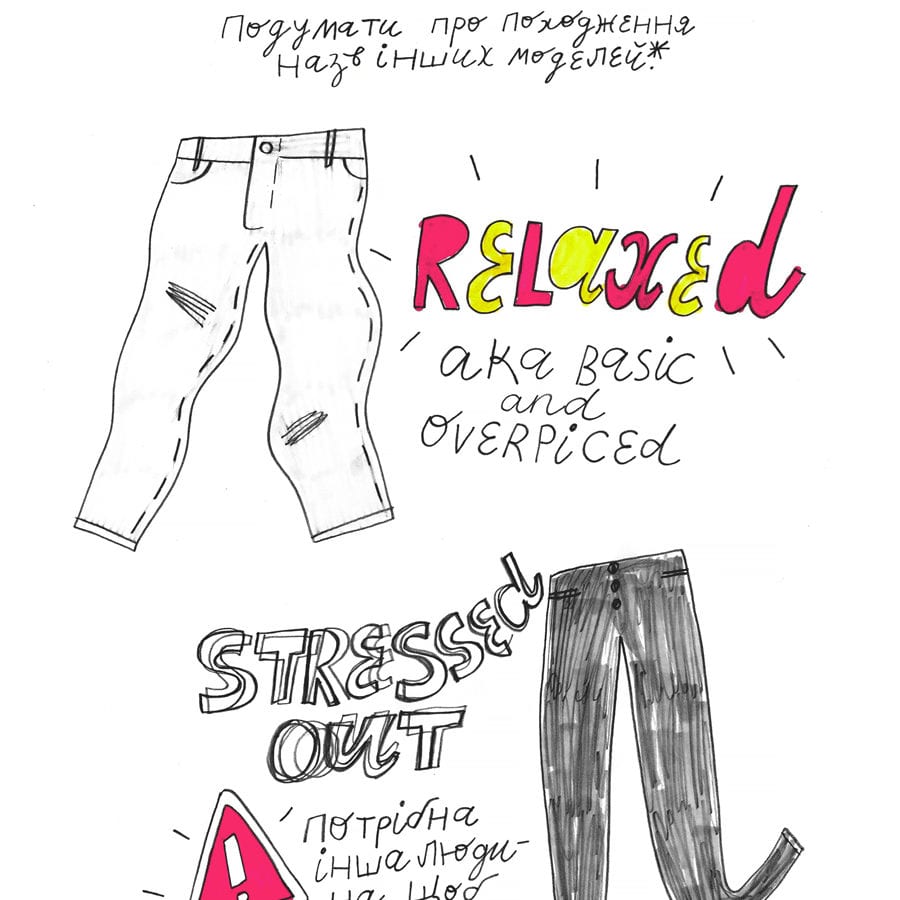 Подумати про походження
назв інших моделей.*
RELAXED
aka Basic
and
OVERPICED
STRESSED
OUT
потрібна
інша люди-
на, щоб